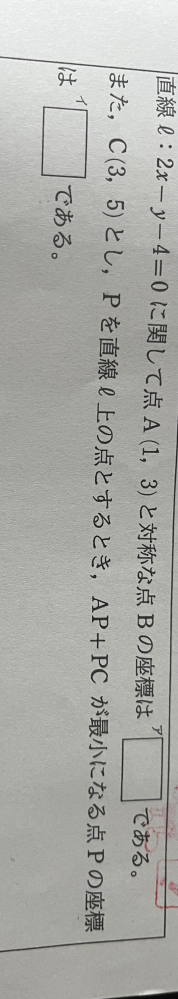 直線ℓ:2x-y-4=0に関して点A(1, 3)と対称な点Bの座標は ア□である。
また,C(3, 5)とし,Pを直線ℓ上の点とするとき,AP+PCが最小になる点Pの座標
は イ□である。